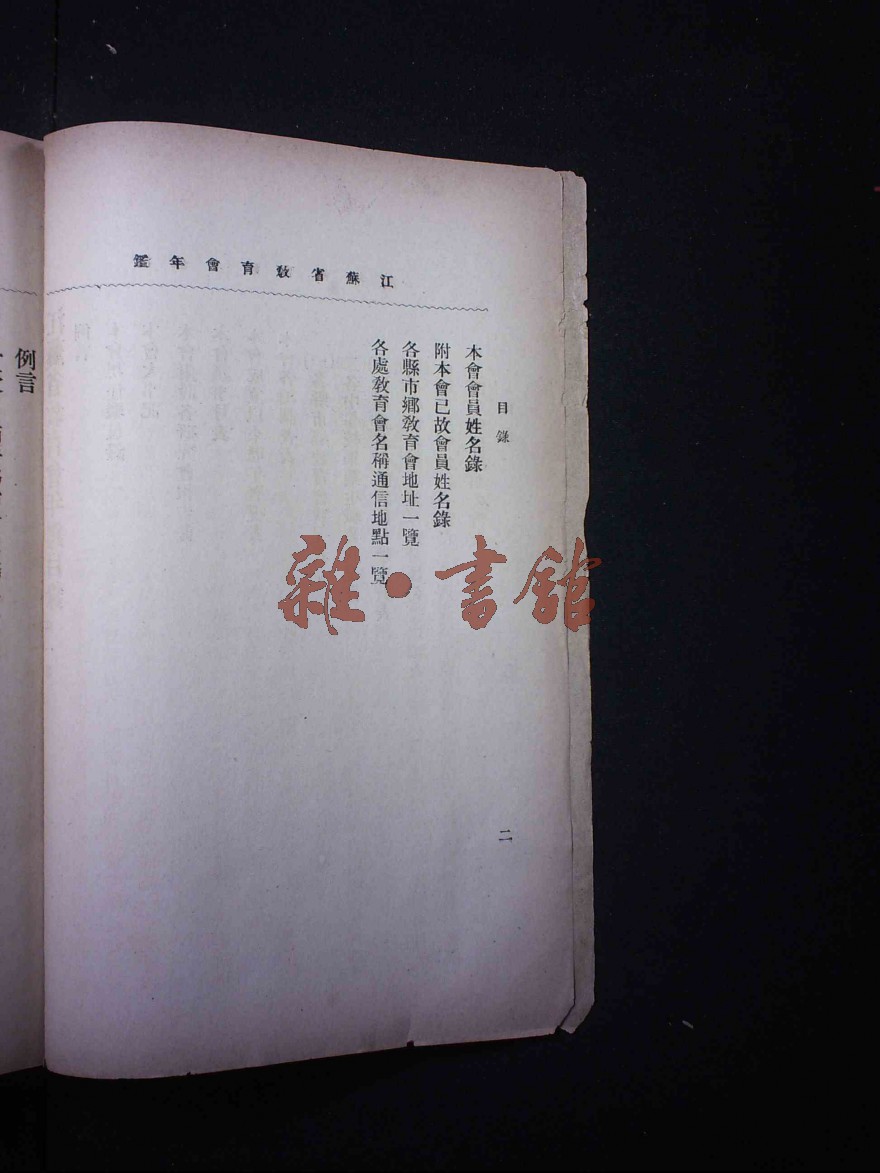 江蘇省教育會年鑑
目錄
本會會員姓名錄
附本會已故會員姓名錄
各縣市鄉教育會地址一覽
各處教育會名稱通信地點一覽
二
例言
雜·書館